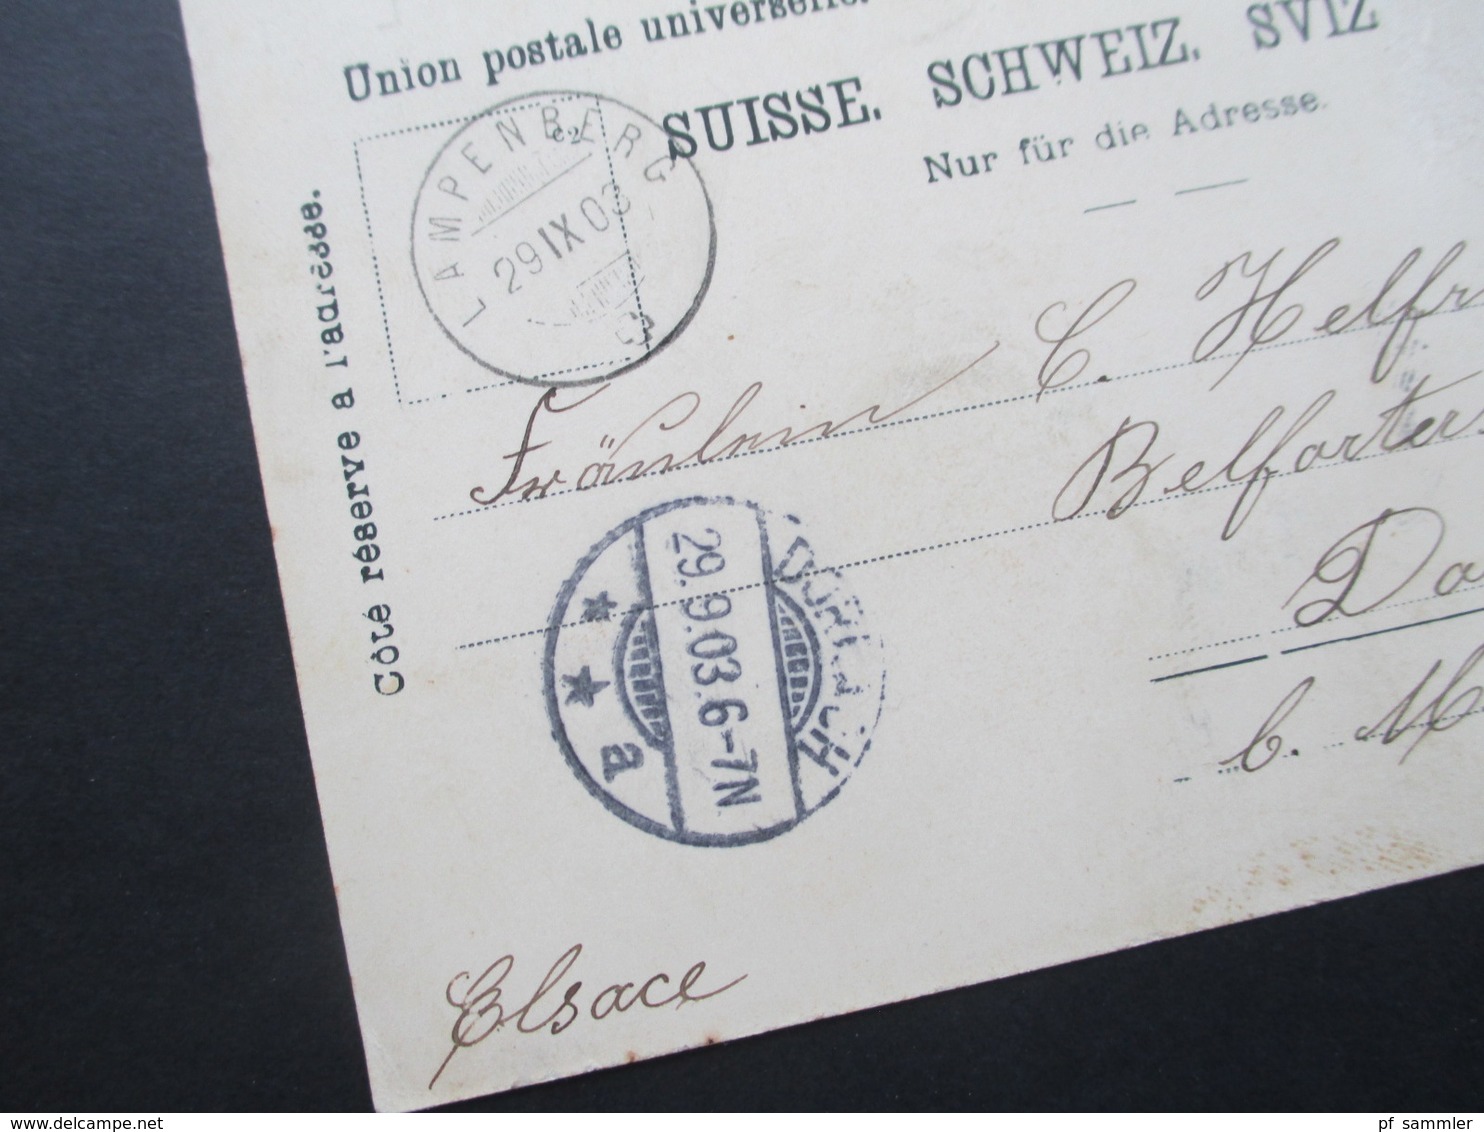 Union postale universelle.
SUISSE. SCHWEIZ. SVIZ
Nur für die Adresse.
Côté réservé à l'adresse.
LAMPENBERG
29 IX 03
Fräulein C. Helfr
Belforter
Do
b. M
DORNACH
29.9.03.6-7N
a
Elsace
pf_sammler